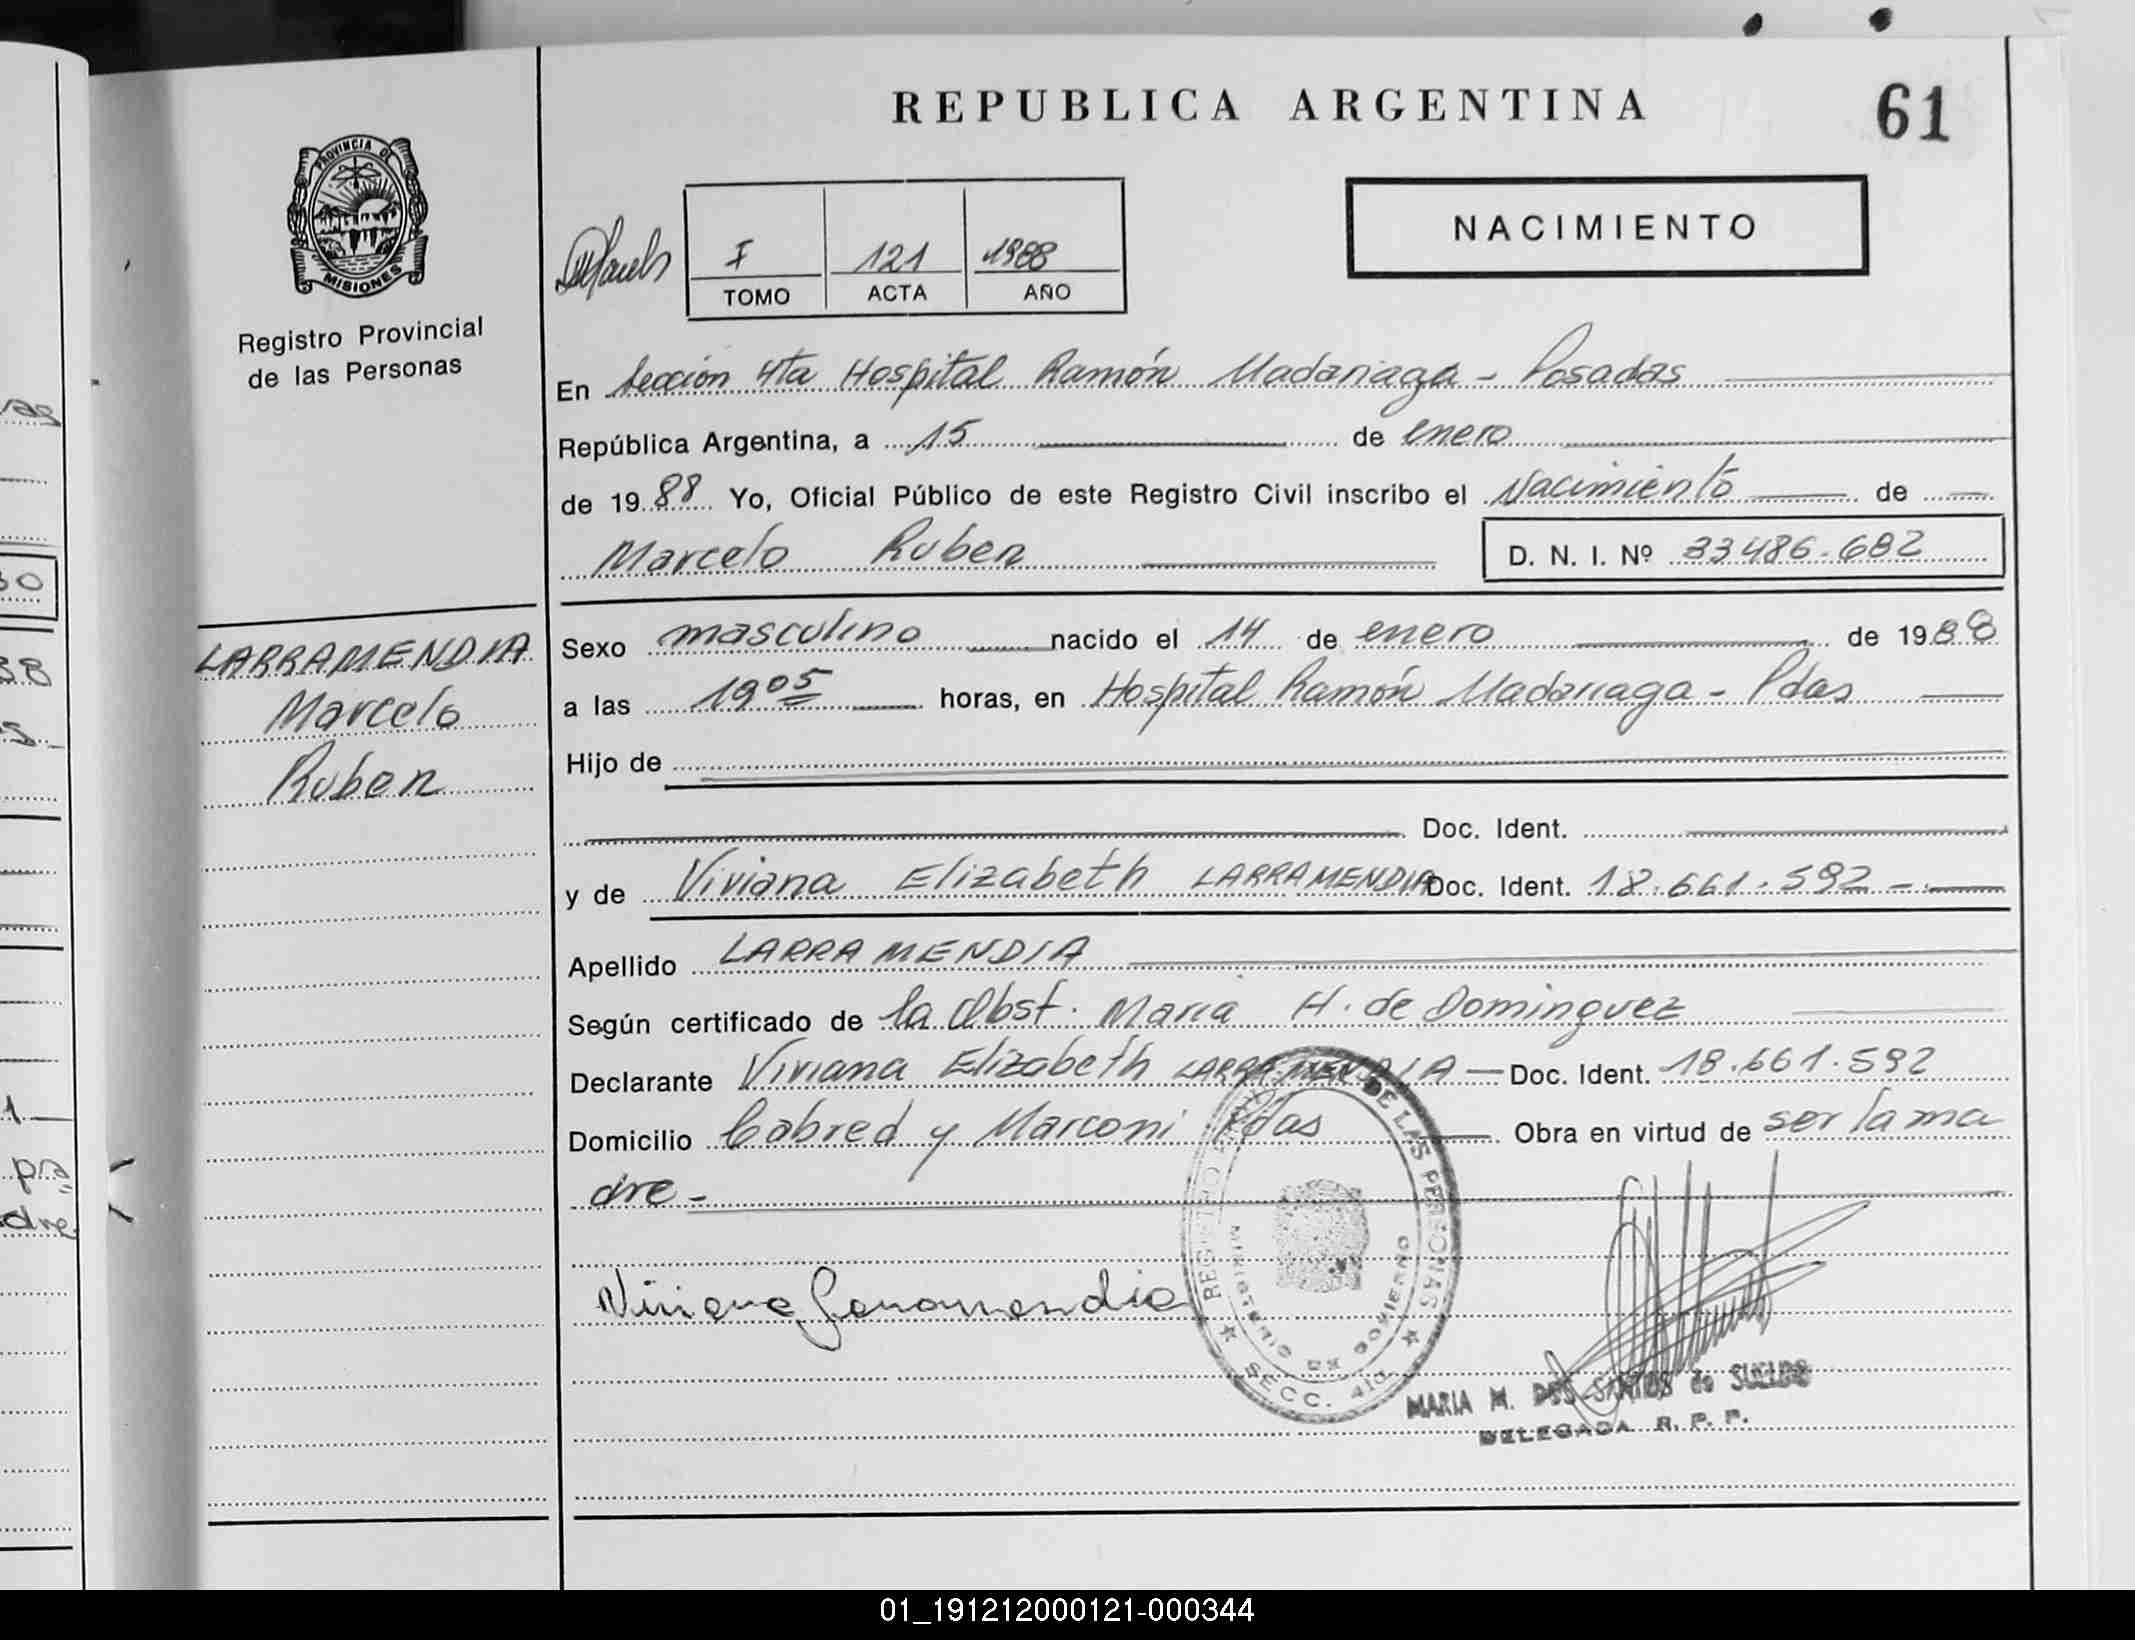 REPUBLICA ARGENTINA
61
PROVINCIA DE
MISIONES
Registro Provincial
de las Personas
I 121 1988
TOMO ACTA AÑO
NACIMIENTO
En Sección 4ta Hospital Ramón Madariaga - Posadas
República Argentina, a 15 de enero
de 1988 Yo, Oficial Público de este Registro Civil inscribo el Nacimiento de
Marcelo Ruben D. N. I. Nº 33486.682
LARRAMENDIA
Marcelo
Ruben
Sexo masculino nacido el 14 de enero de 1988
a las 19 05 horas, en Hospital Ramón Madariaga - Pdas
Hijo de
Doc. Ident.
y de Viviana Elizabeth LARRAMENDIA Doc. Ident. 18.661.592 -
Apellido LARRAMENDIA
Según certificado de la Obst. Maria H. de Dominguez
Declarante Viviana Elizabeth LARRAMENDIA - Doc. Ident. 18.661.592
Domicilio Cabred y Marconi Pdas Obra en virtud de ser la ma
dre -
Viviana Larramendia
REGISTRO DE LAS PERSONAS
MINISTERIO DE GOBIERNO
SECC. 4ta.
MARIA M. DOS SANTOS de SUELDO
DELEGADA R. P. P.
30
38
s.
1
pa
dre
01_191212000121-000344